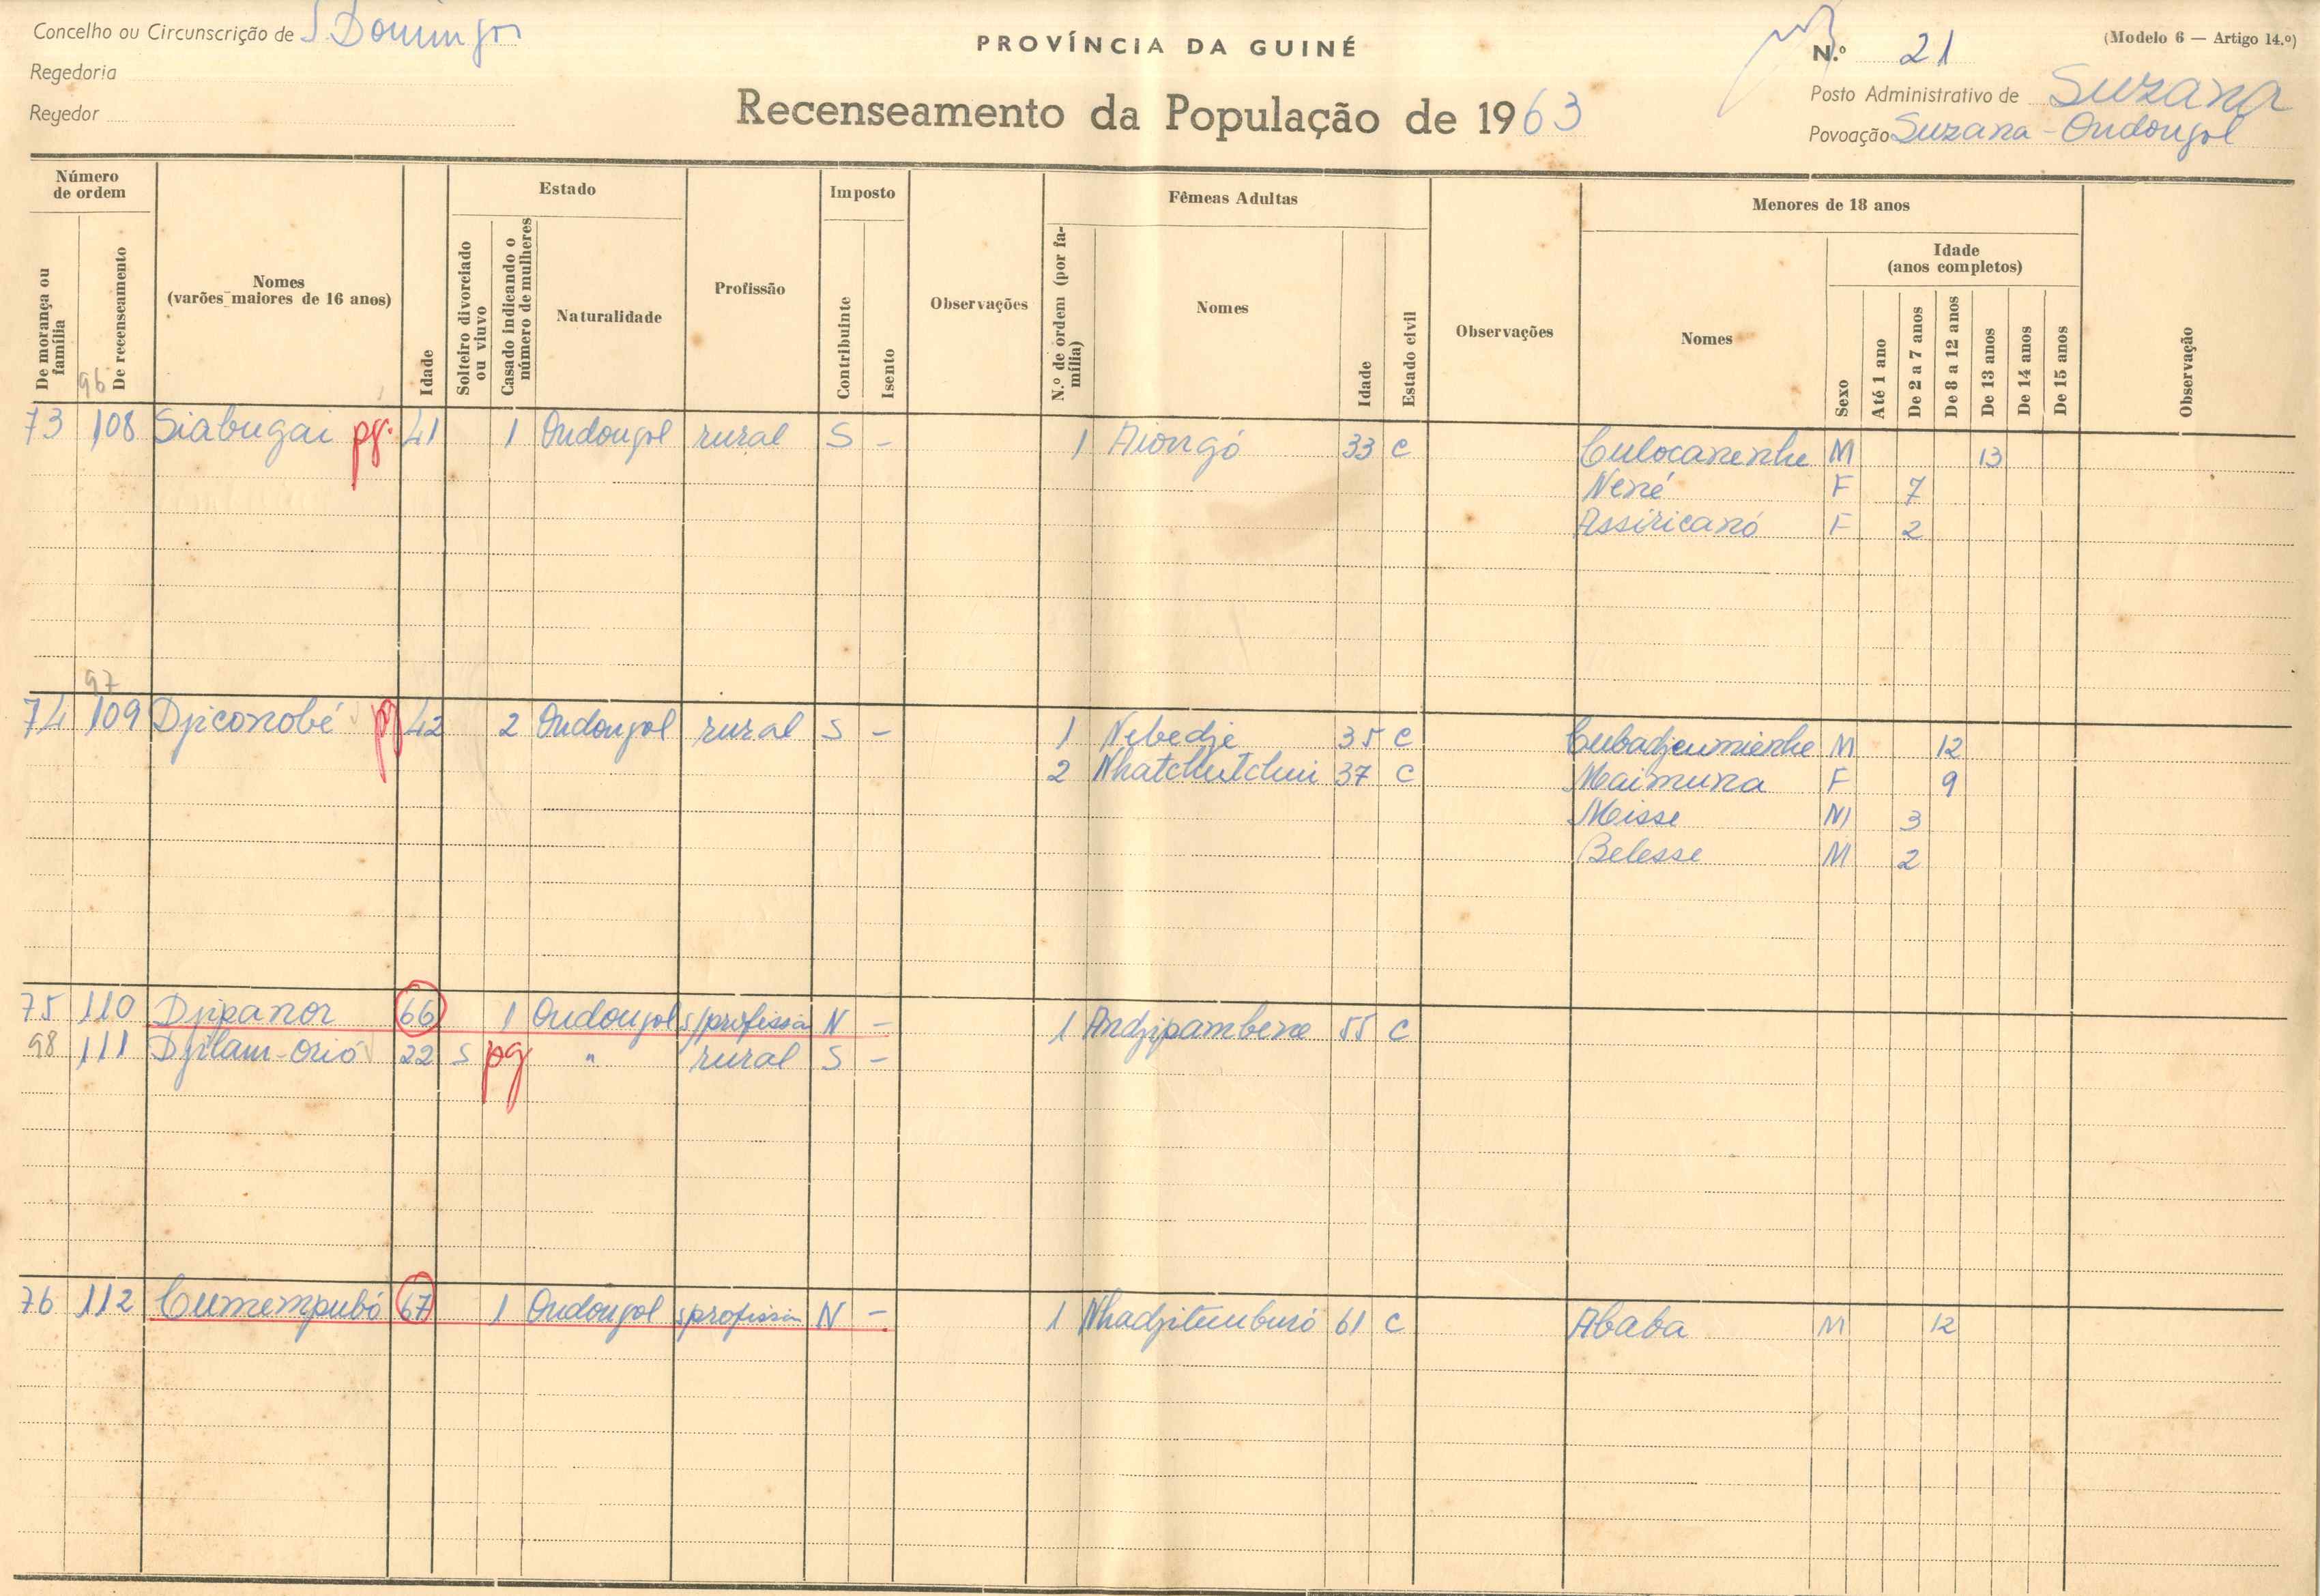 Concelho ou Circunscrição de S. Domingos
PROVÍNCIA DA GUINÉ
N.º 21
(Modelo 6 — Artigo 14.º)
Regedoria
Posto Administrativo de Suzana
Regedor
Recenseamento da População de 1963
Povoação Suzana - Ondongol
Número de ordem
Estado
Imposto
Fêmeas Adultas
Menores de 18 anos
Idade (anos completos)
De morança ou família
De recenseamento
Nomes (varões maiores de 16 anos)
Idade
Solteiro divorciado ou viuvo
Casado indicando o número de mulheres
Naturalidade
Profissão
Contribuinte
Isento
Observações
N.º de ordem (por família)
Nomes
Idade
Estado civil
Observações
Nomes
Sexo
Até 1 ano
De 2 a 7 anos
De 8 a 12 anos
De 13 anos
De 14 anos
De 15 anos
Observação
96
73 108 Siabugai pg. 41 1 Ondongol rural S - 1 Aiongó 33 C Culocanenhe M 13
Nené F 7
Assiricanó F 2
97
74 109 Djiconobé pg 42 2 Ondongol rural S - 1 Nebedje 35 C Cubadjeumienhe M 12
2 Nhatchutchui 37 C Maimuna F 9
Meisse M 3
Belesse M 2
75 110 Djipanor 66 1 Ondongol s/profissão N - 1 Andjipambene 55 C
98 111 Djilam-Orió 22 S pg " rural S -
76 112 Cumempubó 67 1 Ondongol s/profissão N - 1 Nhadjitumburó 61 C Ababa M 12